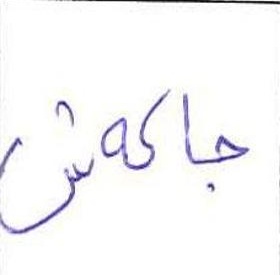 جادەش